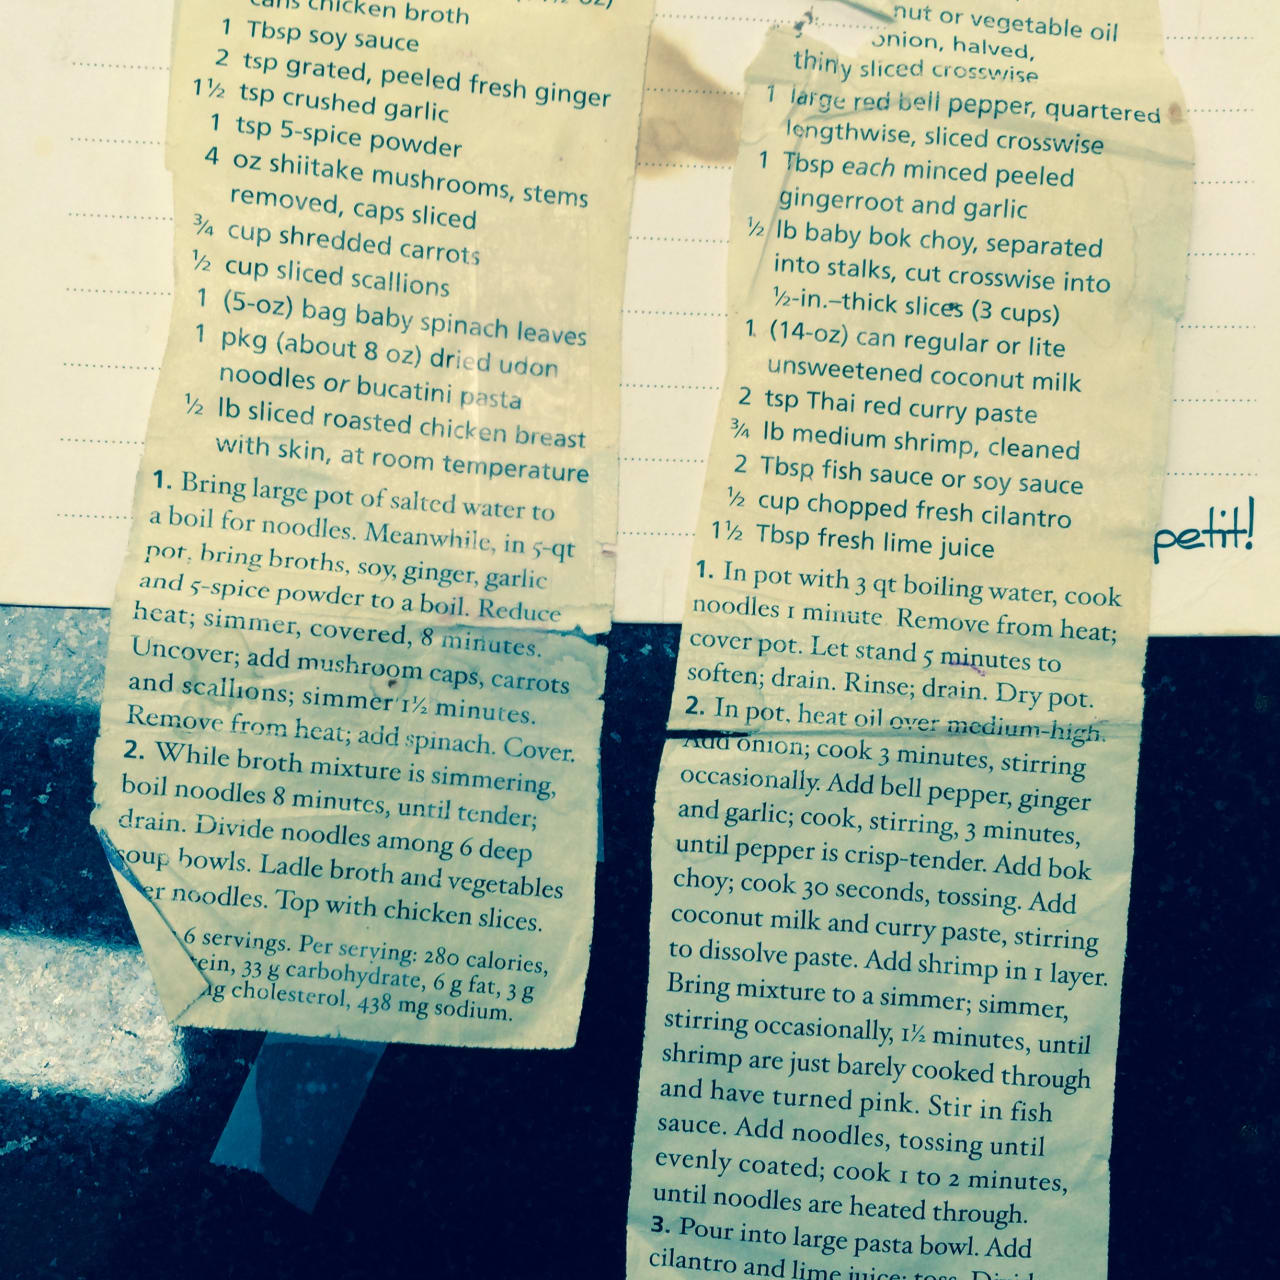 cans chicken broth
1 Tbsp soy sauce
2 tsp grated, peeled fresh ginger
1½ tsp crushed garlic
1 tsp 5-spice powder
4 oz shiitake mushrooms, stems
removed, caps sliced
¾ cup shredded carrots
½ cup sliced scallions
1 (5-oz) bag baby spinach leaves
1 pkg (about 8 oz) dried udon
noodles or bucatini pasta
½ lb sliced roasted chicken breast
with skin, at room temperature
1. Bring large pot of salted water to
a boil for noodles. Meanwhile, in 5-qt
pot, bring broths, soy, ginger, garlic
and 5-spice powder to a boil. Reduce
heat; simmer, covered, 8 minutes.
Uncover; add mushroom caps, carrots
and scallions; simmer 1½ minutes.
Remove from heat; add spinach. Cover.
2. While broth mixture is simmering,
boil noodles 8 minutes, until tender;
drain. Divide noodles among 6 deep
soup bowls. Ladle broth and vegetables
er noodles. Top with chicken slices.
6 servings. Per serving: 280 calories,
ein, 33 g carbohydrate, 6 g fat, 3 g
cholesterol, 438 mg sodium.
nut or vegetable oil
onion, halved,
thinly sliced crosswise
1 large red bell pepper, quartered
lengthwise, sliced crosswise
1 Tbsp each minced peeled
gingerroot and garlic
½ lb baby bok choy, separated
into stalks, cut crosswise into
½-in.–thick slices (3 cups)
1 (14-oz) can regular or lite
unsweetened coconut milk
2 tsp Thai red curry paste
¾ lb medium shrimp, cleaned
2 Tbsp fish sauce or soy sauce
½ cup chopped fresh cilantro
1½ Tbsp fresh lime juice
1. In pot with 3 qt boiling water, cook
noodles 1 minute. Remove from heat;
cover pot. Let stand 5 minutes to
soften; drain. Rinse; drain. Dry pot.
2. In pot, heat oil over medium-high.
Add onion; cook 3 minutes, stirring
occasionally. Add bell pepper, ginger
and garlic; cook, stirring, 3 minutes,
until pepper is crisp-tender. Add bok
choy; cook 30 seconds, tossing. Add
coconut milk and curry paste, stirring
to dissolve paste. Add shrimp in 1 layer.
Bring mixture to a simmer; simmer,
stirring occasionally, 1½ minutes, until
shrimp are just barely cooked through
and have turned pink. Stir in fish
sauce. Add noodles, tossing until
evenly coated; cook 1 to 2 minutes,
until noodles are heated through.
3. Pour into large pasta bowl. Add
cilantro and lime juice; toss.
petit!